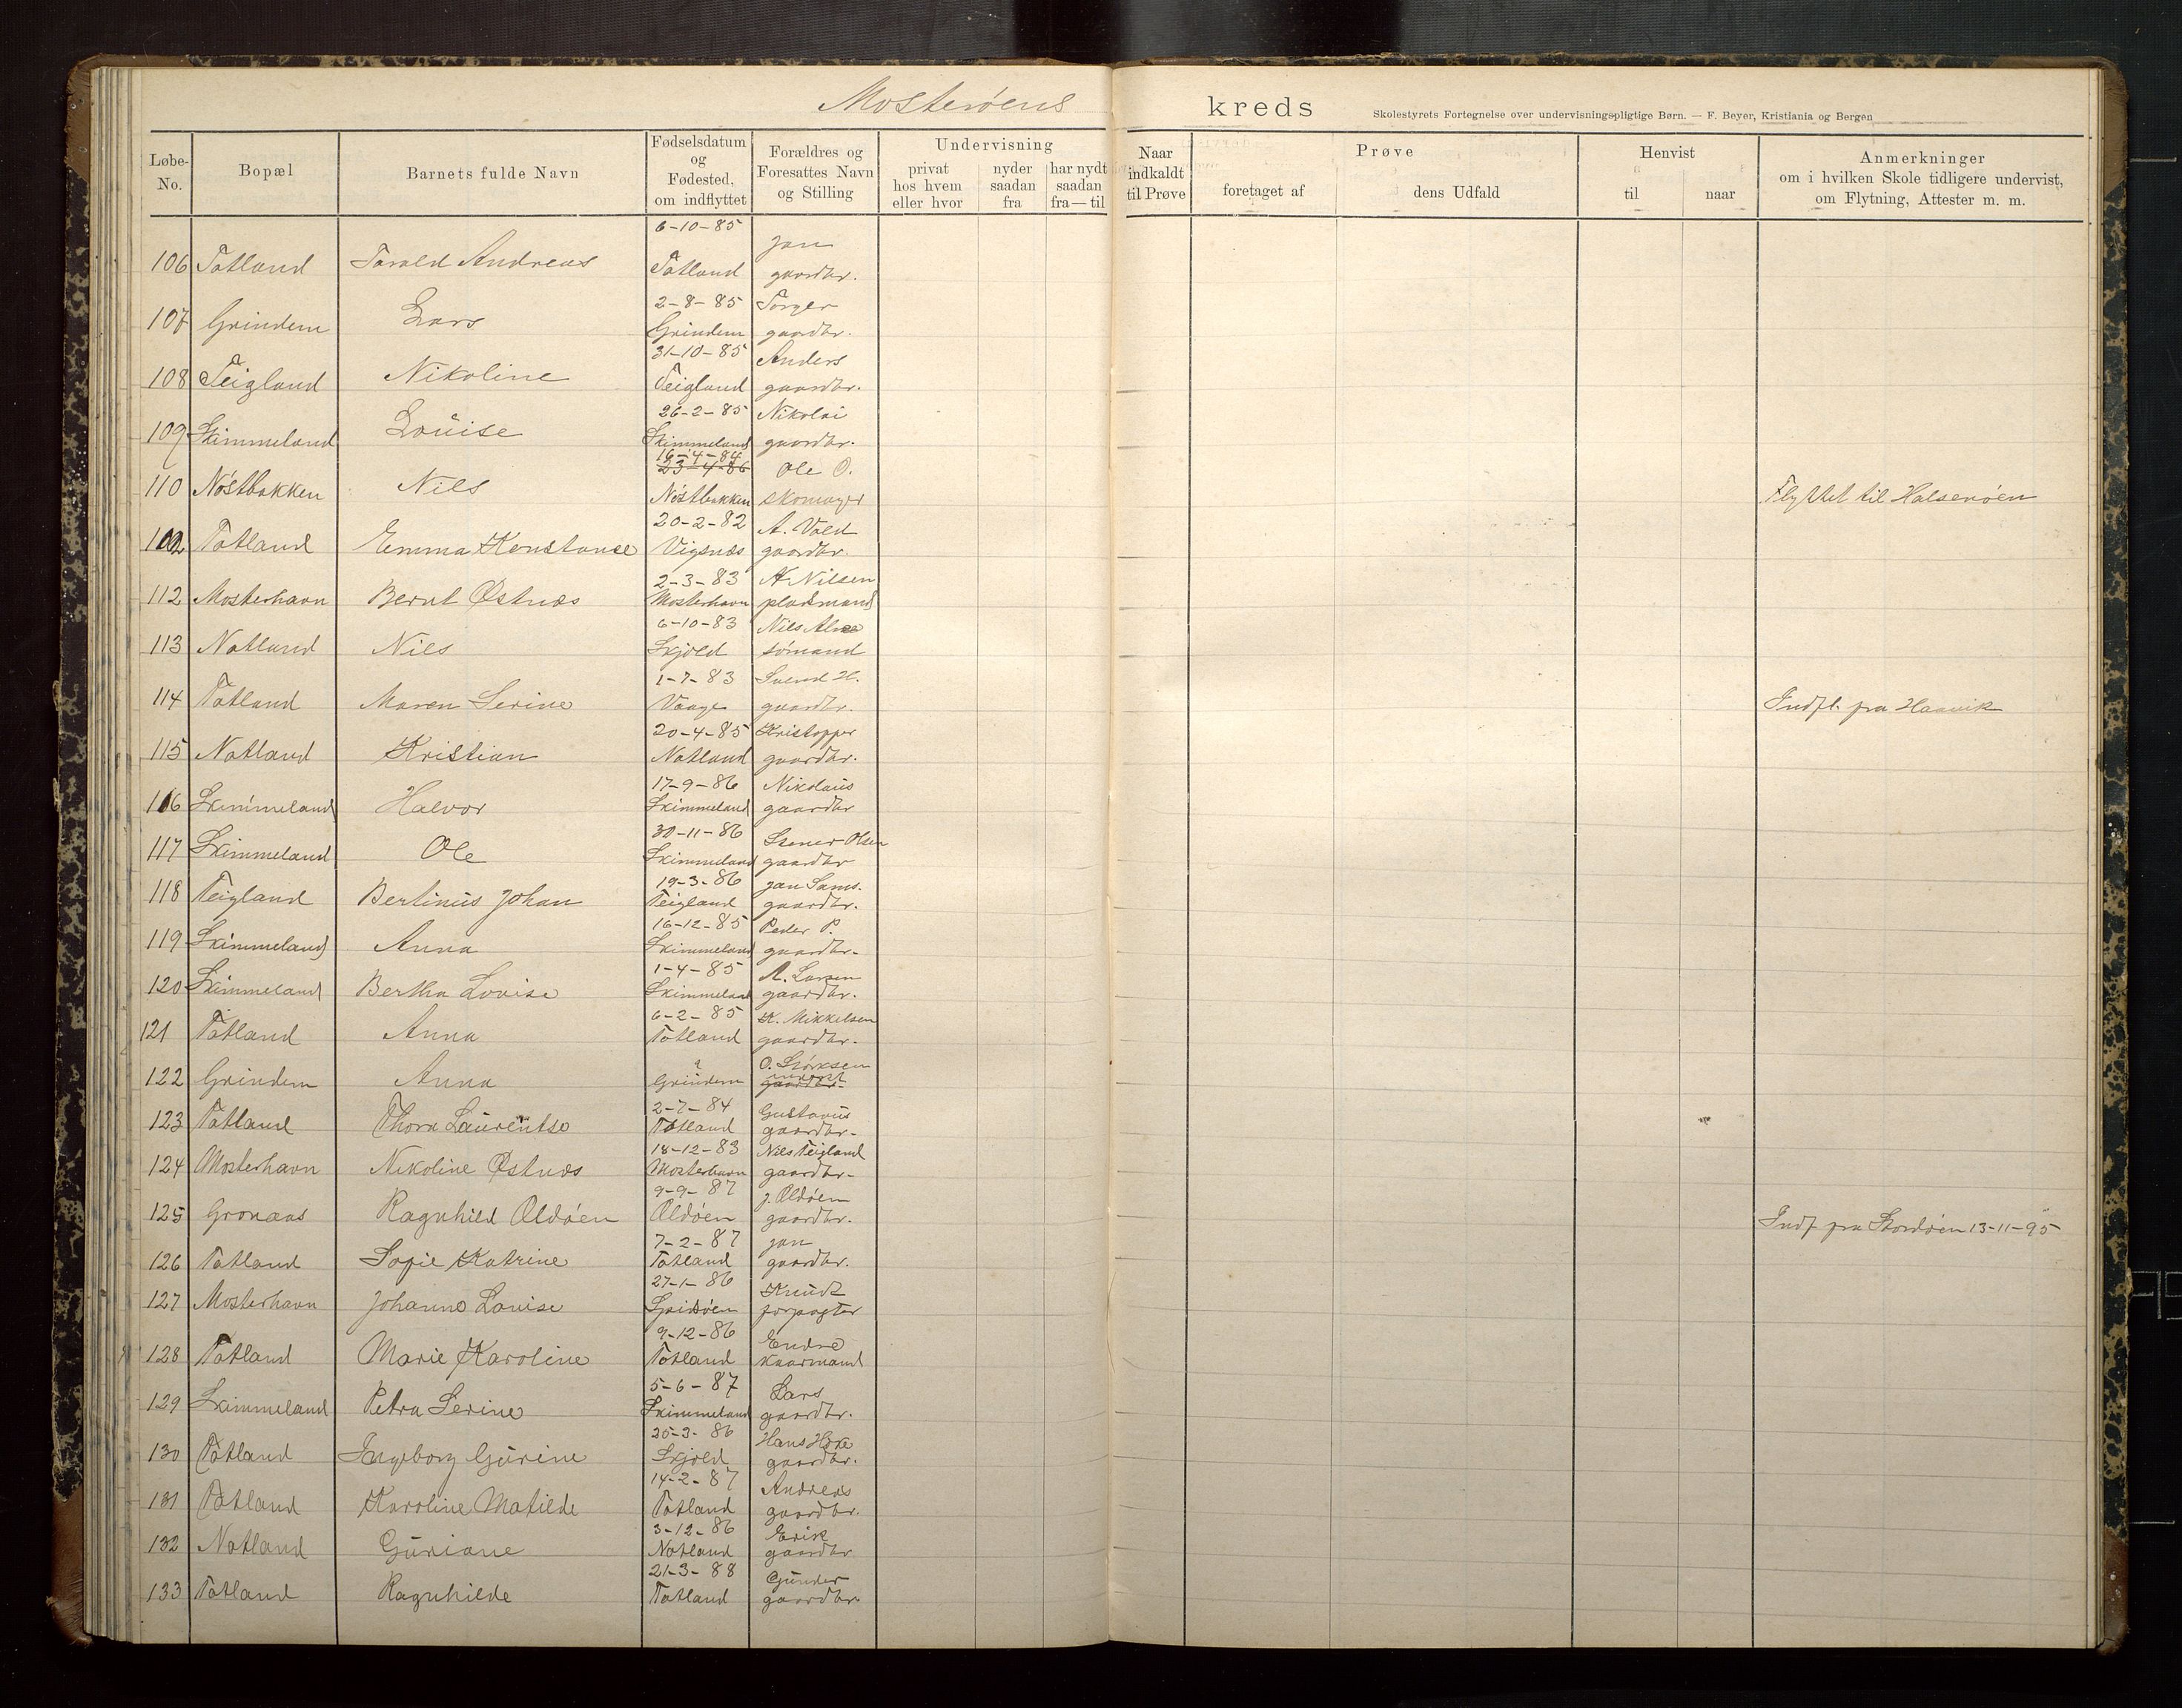 Mosterøens kreds
Skolestyrets Fortegnelse over undervisningspligtige Børn. — F. Beyer, Kristiania og Bergen
Løbe-No. Bopæl Barnets fulde Navn Fødselsdatum og Fødested, om indflyttet Forældres og Foresattes Navn og Stilling Undervisning privat hos hvem eller hvor nyder saadan fra har nydt saadan fra—til Naar indkaldt til Prøve Prøve foretaget af dens Udfald Henvist til naar Anmerkninger om i hvilken Skole tidligere undervist, om Flytning, Attester m. m.
6-10-85 Jan
106 Totland Torald Andreas Totland gaardbr.
2-8-85 Torger
107 Grindem Lars Grindem gaardbr.
31-10-85 Anders
108 Teigland Nikoline Teigland gaardbr.
26-2-85 Nikolai
109 Skimmeland Louise Skimmeland gaardbr.
16-4-84
23-4-86 Ole O.
110 Nøstbakken Nils Nøstbakken skomager Flyttet til Halsenøen
20-2-82 A. Vold
102 Totland Emma Konstanse Vigsnæs gaardbr.
2-3-83 A Nilsen
112 Mosterhavn Bernt Østnæs Mosterhavn pladsmand
6-10-83 Nils
113 Notland Nils Skjold sømand
1-7-83 Svend H.
114 Totland Maren Serine Vaage gaardbr. Indfl. fra Haavik
20-4-85 Kristoffer
115 Notland Kristian Notland gaardbr.
17-9-86 Nikolaus
116 Skimmeland Halvor Skimmeland gaardbr
30-11-86 Olsen
117 Skimmeland Ole Skimmeland gaardbr
19-3-86 Jan Sams.
118 Teigland Bertinius Johan Teigland gaardbr.
16-12-85 Peder P.
119 Skimmeland Anna Skimmeland gaardbr.
1-4-85 A. Larsen
120 Skimmeland Bertha Lovise Skimmeland gaardbr.
6-2-85 K. Mikkelsen
121 Totland Anna Totland gaardbr.
? O. Størksen
122 Grindem Anna Grindem gaardbr.
2-7-84 Gustavus
123 Totland Thora Laurentse Totland gaardbr.
18-12-83 Nils Teigland
124 Mosterhavn Nikoline Østnæs Mosterhavn gaardbr.
9-9-87 J. Oldøen
125 Gronaas Ragnhild Oldøen Oldøen gaardbr. Indf. fra Stordøen 13-11-95
7-2-87 Jan
126 Totland Sofie Katrine Totland gaardbr.
27-1-86 Knudt
127 Mosterhavn Johanne Lovise Spidsøen forpagter
9-12-86 Endre
128 Totland Marie Karoline Totland kaarmand
5-6-87 Lars
129 Skimmeland Petra Serine Skimmeland gaardbr.
25-3-86 Hans
130 Totland Ingeborg Gurine Skjold gaardbr.
14-2-87 Andreas
131 Totland Karoline Matilde Totland gaardbr.
3-12-86 Erik
132 Notland Guriane Notland gaardbr
21-3-88 Gunder
133 Totland Ragnhilde Totland gaardbr.